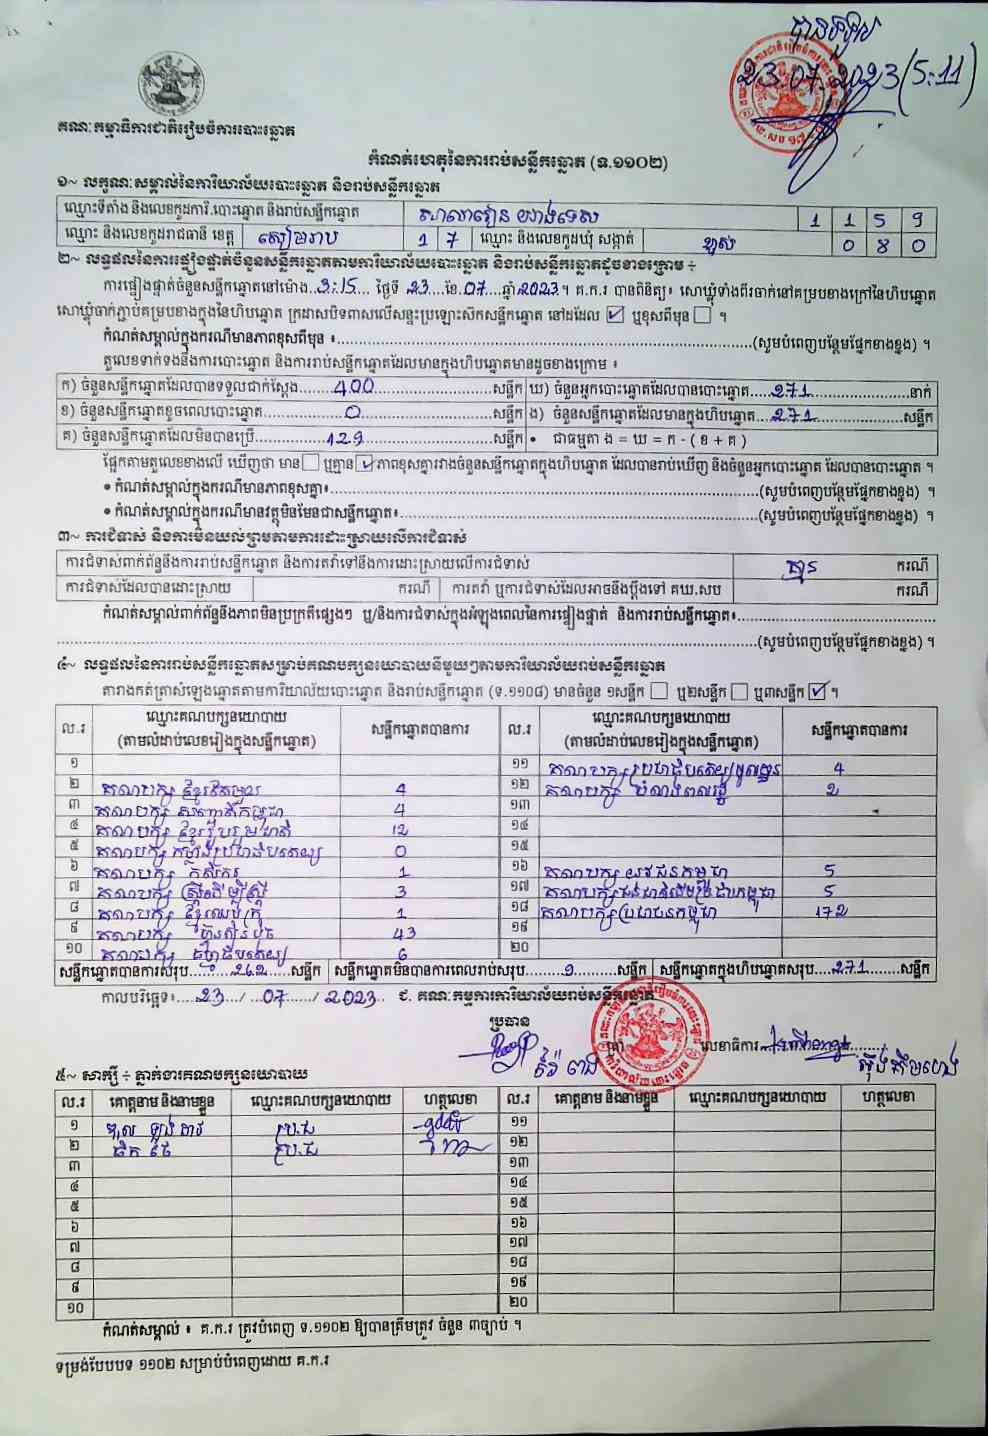 បានទទួល
23.07.2023 (5:11)
គណៈកម្មាធិការជាតិរៀបចំការបោះឆ្នោត
កំណត់ហេតុនៃការរាប់សន្លឹកឆ្នោត (ទ.១១០២)
១~ លក្ខណៈសម្គាល់នៃការិយាល័យបោះឆ្នោត និងរាប់សន្លឹកឆ្នោត
ឈ្មោះទីតាំង និងលេខកូដការិ.បោះឆ្នោត និងរាប់សន្លឹកឆ្នោត សាលារៀន 1 1 5 9
ឈ្មោះ និងលេខកូដរាជធានី ខេត្ត សៀមរាប 1 7 ឈ្មោះ និងលេខកូដឃុំ សង្កាត់ ខ្នស់ 0 8 0
២~ លទ្ធផលនៃការផ្ទៀងផ្ទាត់ចំនួនសន្លឹកឆ្នោតតាមការិយាល័យបោះឆ្នោត និងរាប់សន្លឹកឆ្នោតដូចខាងក្រោម ÷
ការផ្ទៀងផ្ទាត់ចំនួនសន្លឹកឆ្នោតនៅម៉ោង..3:15... ថ្ងៃទី 23 ខែ.07 ឆ្នាំ.2023។ គ.ក.រ បានពិនិត្យ៖ សោឃ្លុំទាំងពីរចាក់នៅគម្របខាងក្រៅនៃហិបឆ្នោត
សោឃ្លុំចាក់ភ្ជាប់គម្របខាងក្នុងនៃហិបឆ្នោត ក្រដាសបិទពាសលើសន្ទះប្រឡោះសឹកសន្លឹកឆ្នោត នៅដដែល ☑ ឬខុសពីមុន ☐ ។
កំណត់សម្គាល់ក្នុងករណីមានភាពខុសពីមុន ៖..........(សូមបំពេញបន្ថែមផ្នែកខាងខ្នង) ។
តួលេខទាក់ទងនឹងការបោះឆ្នោត និងការរាប់សន្លឹកឆ្នោតដែលមានក្នុងហិបឆ្នោតមានដូចខាងក្រោម ៖
ក) ចំនួនសន្លឹកឆ្នោតដែលបានទទួលជាក់ស្តែង.....400.....សន្លឹក ឃ) ចំនួនអ្នកបោះឆ្នោតដែលបានបោះឆ្នោត.....271.....នាក់
ខ) ចំនួនសន្លឹកឆ្នោតខូចពេលបោះឆ្នោត.....0.....សន្លឹក ង) ចំនួនសន្លឹកឆ្នោតដែលមានក្នុងហិបឆ្នោត.....271.....សន្លឹក
គ) ចំនួនសន្លឹកឆ្នោតដែលមិនបានប្រើ.....129.....សន្លឹក • ជាធម្មតា ង = ឃ = ក - ( ខ + គ )
ផ្អែកតាមតួលេខខាងលើ ឃើញថា មាន ☐ ឬគ្មាន ☑ ភាពខុសគ្នារវាងចំនួនសន្លឹកឆ្នោតក្នុងហិបឆ្នោត ដែលបានរាប់ឃើញ និងចំនួនអ្នកបោះឆ្នោត ដែលបានបោះឆ្នោត ។
• កំណត់សម្គាល់ក្នុងករណីមានភាពខុសគ្នា៖..........(សូមបំពេញបន្ថែមផ្នែកខាងខ្នង) ។
• កំណត់សម្គាល់ក្នុងករណីមានវត្ថុមិនមែនជាសន្លឹកឆ្នោត៖..........(សូមបំពេញបន្ថែមផ្នែកខាងខ្នង) ។
៣~ ការជំទាស់ និងការមិនយល់ព្រមតាមការដោះស្រាយលើការជំទាស់
ការជំទាស់ពាក់ព័ន្ធនឹងការរាប់សន្លឹកឆ្នោត និងការតវ៉ាទៅនឹងការដោះស្រាយលើការជំទាស់ គ្មាន ករណី
ការជំទាស់ដែលបានដោះស្រាយ ករណី ការតវ៉ា ឬការជំទាស់ដែលអាចនឹងប្តឹងទៅ គឃ.សប ករណី
កំណត់សម្គាល់ពាក់ព័ន្ធនឹងភាពមិនប្រក្រតីផ្សេងៗ ឬ/និងការជំទាស់ក្នុងអំឡុងពេលនៃការផ្ទៀងផ្ទាត់ និងការរាប់សន្លឹកឆ្នោត៖..........
..........(សូមបំពេញបន្ថែមផ្នែកខាងខ្នង) ។
៤~ លទ្ធផលនៃការរាប់សន្លឹកឆ្នោតសម្រាប់គណបក្សនយោបាយនីមួយៗតាមការិយាល័យរាប់សន្លឹកឆ្នោត
តារាងកត់ត្រាសំឡេងឆ្នោតតាមការិយាល័យបោះឆ្នោត និងរាប់សន្លឹកឆ្នោត (ទ.១១០៨) មានចំនួន ១សន្លឹក ☐ ឬ២សន្លឹក ☐ ឬ៣សន្លឹក ☑ ។
ល.រ ឈ្មោះគណបក្សនយោបាយ (តាមលំដាប់លេខរៀងក្នុងសន្លឹកឆ្នោត) សន្លឹកឆ្នោតបានការ ល.រ ឈ្មោះគណបក្សនយោបាយ (តាមលំដាប់លេខរៀងក្នុងសន្លឹកឆ្នោត) សន្លឹកឆ្នោតបានការ
១ ១១ គណបក្សប្រជាធិបតេយ្យមូលដ្ឋាន 4
២ គណបក្ស ខ្មែរតែមួយ 4 ១២ គណបក្ស បំណងពលរដ្ឋ 2
៣ គណបក្ស សញ្ជាតិកម្ពុជា 4 ១៣
៤ គណបក្ស ខ្មែររួបរួមជាតិ 12 ១៤
៥ គណបក្ស កម្លាំងប្រជាធិបតេយ្យ 0 ១៥
៦ គណបក្ស កសិករ 1 ១៦ គណបក្ស យុវជនកម្ពុជា 5
៧ គណបក្ស ស្ត្រីដើម្បីស្ត្រី 3 ១៧ គណបក្សជនជាតិដើមប្រជាធិបកម្ពុជា 5
៨ គណបក្ស ខ្មែរឈប់ក្រ 1 ១៨ គណបក្សប្រជាជនកម្ពុជា 172
៩ គណបក្ស ហ៊្វុនស៊ិនប៉ិច 43 ១៩
១០ គណបក្ស ធម្មាធិបតេយ្យ 6 ២០
សន្លឹកឆ្នោតបានការសរុប.....262.....សន្លឹក សន្លឹកឆ្នោតមិនបានការពេលរាប់សរុប.....9.....សន្លឹក សន្លឹកឆ្នោតក្នុងហិបឆ្នោតសរុប.....271.....សន្លឹក
កាលបរិច្ឆេទ៖ 23 / 07 / 2023 ជ. គណៈកម្មការការិយាល័យរាប់សន្លឹកឆ្នោត
ប្រធាន
លេខាធិការ
៥~ សាក្សី ÷ ភ្នាក់ងារគណបក្សនយោបាយ
ល.រ គោត្តនាម និងនាមខ្លួន ឈ្មោះគណបក្សនយោបាយ ហត្ថលេខា ល.រ គោត្តនាម និងនាមខ្លួន ឈ្មោះគណបក្សនយោបាយ ហត្ថលេខា
១ ប្រ.ជ ១១
២ ប្រ.ជ ១២
៣ ១៣
៤ ១៤
៥ ១៥
៦ ១៦
៧ ១៧
៨ ១៨
៩ ១៩
១០ ២០
កំណត់សម្គាល់ ៖ គ.ក.រ ត្រូវបំពេញ ទ.១១០២ ឱ្យបានត្រឹមត្រូវ ចំនួន ៣ច្បាប់ ។
ទម្រង់បែបបទ ១១០២ សម្រាប់បំពេញដោយ គ.ក.រ